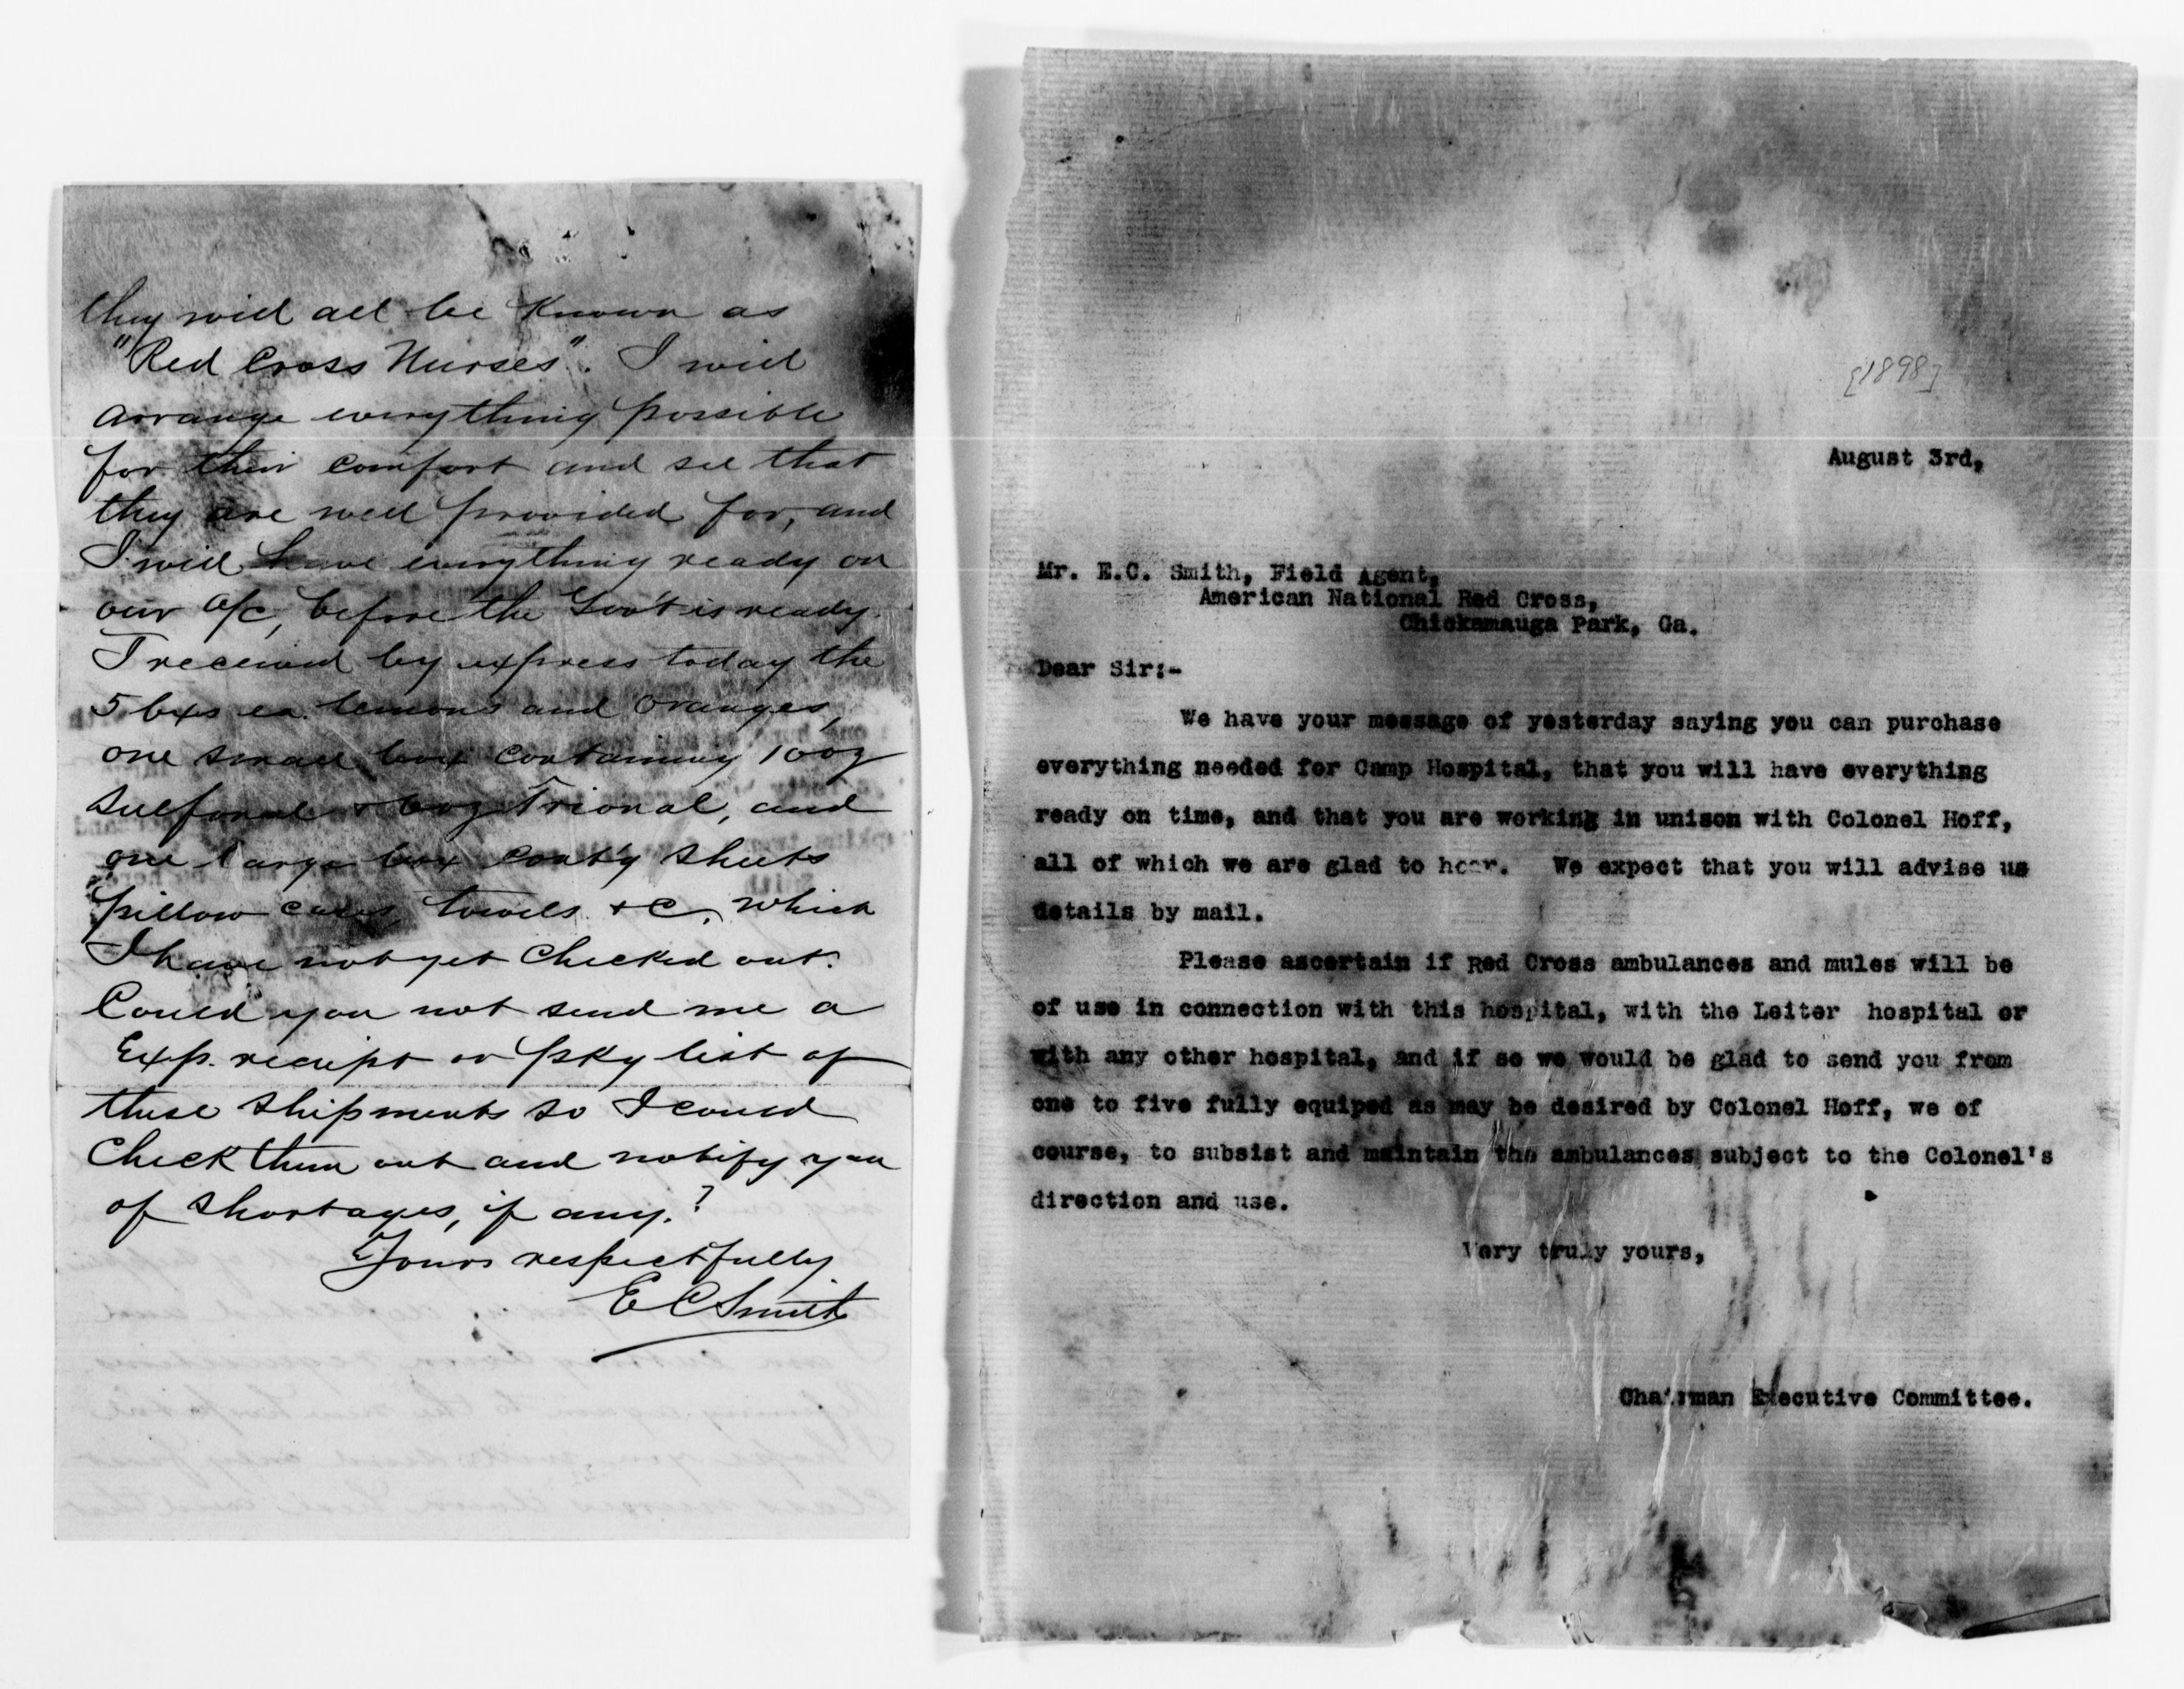 they will all be known as
"Red Cross Nurses". I will
arrange everything possible
for their comfort and see that
they are well provided for, and
I will have everything ready on
our a/c, before the Gov't is ready.
I received by express today the
5 bxs ea. lemons and oranges,
one small box containing 100z
Sulfonal & 60z Trional, and
one large box cont'g sheets
pillow cases, towels &C, which
I have not yet checked out.
Could you not send me a
Exp. receipt or pkg list of
these shipments so I could
check them out and notify you
of shortages, if any.?
Yours respectfully
E C Smith
[1898]
August 3rd,
Mr. E.C. Smith, Field Agent,
American National Red Cross,
Chickamauga Park, Ga.
Dear Sir:-
We have your message of yesterday saying you can purchase
everything needed for Camp Hospital, that you will have everything
ready on time, and that you are working in unison with Colonel Hoff,
all of which we are glad to hear. We expect that you will advise us
details by mail.
Please ascertain if Red Cross ambulances and mules will be
of use in connection with this hospital, with the Leiter hospital or
with any other hospital, and if so we would be glad to send you from
one to five fully equiped as may be desired by Colonel Hoff, we of
course, to subsist and maintain the ambulances subject to the Colonel's
direction and use.
Very truly yours,
Chairman Executive Committee.